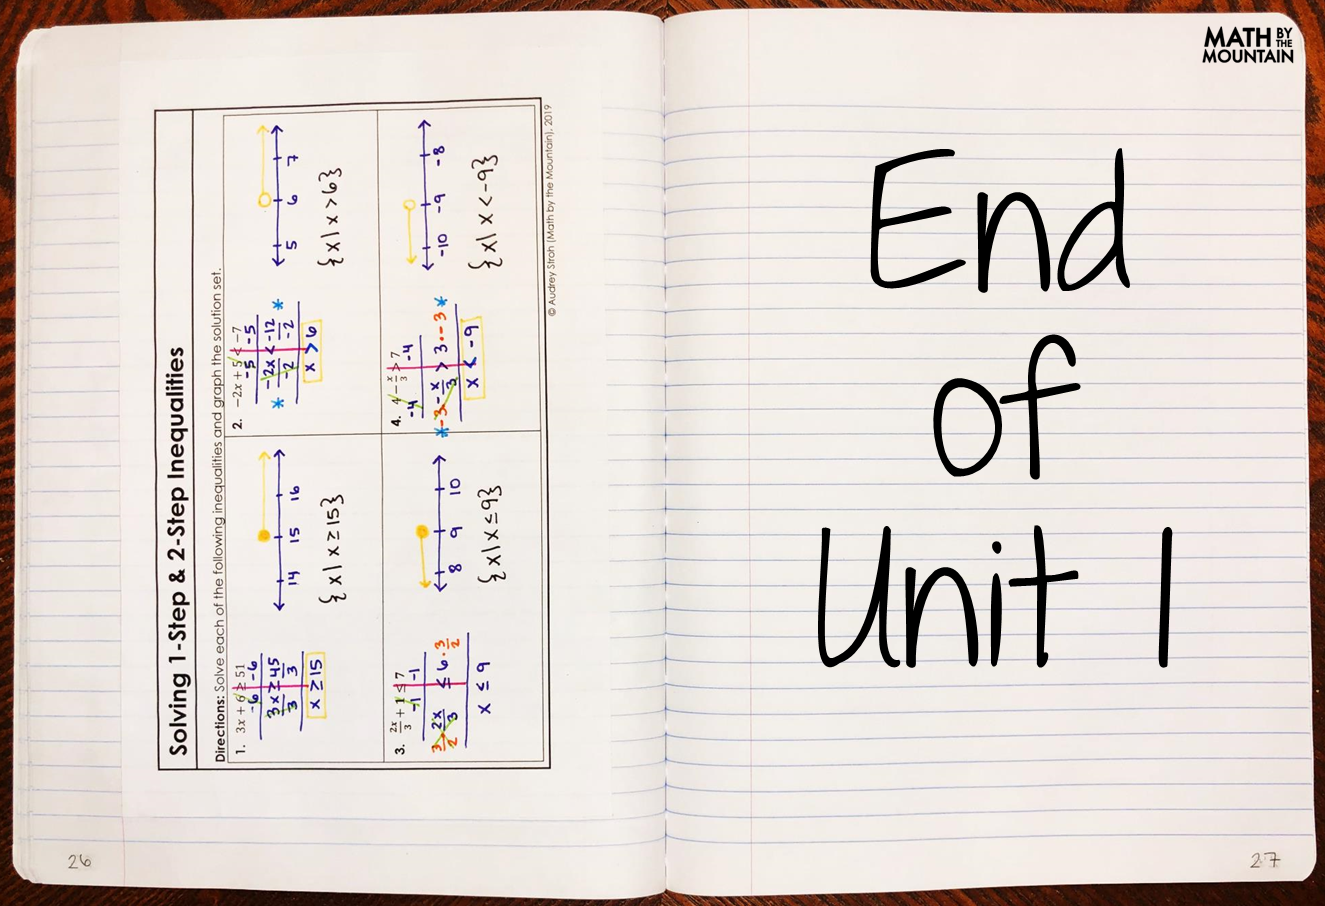 Solving 1-Step & 2-Step Inequalities
Directions: Solve each of the following inequalities and graph the solution set.
1. 3x + 6 ≥ 51
-6 -6
3x ≥ 45
3 3
x ≥ 15
14 15 16
{x | x ≥ 15}
2. -2x + 5 < -7
-5 -5
* -2x < -12 *
-2 -2
x > 6
5 6 7
{x | x > 6}
3. 2x/3 + 1 ≤ 7
-1 -1
3/2 · 2x/3 ≤ 6 · 3/2
x ≤ 9
8 9 10
{x | x ≤ 9}
4. 4 - x/3 > 7
-4 -4
* -3 · -x/3 > 3 · -3 *
x < -9
-10 -9 -8
{x | x < -9}
© Audrey Stroh (Math by the Mountain), 2019
26
MATH BY THE
MOUNTAIN
End
of
Unit 1
27